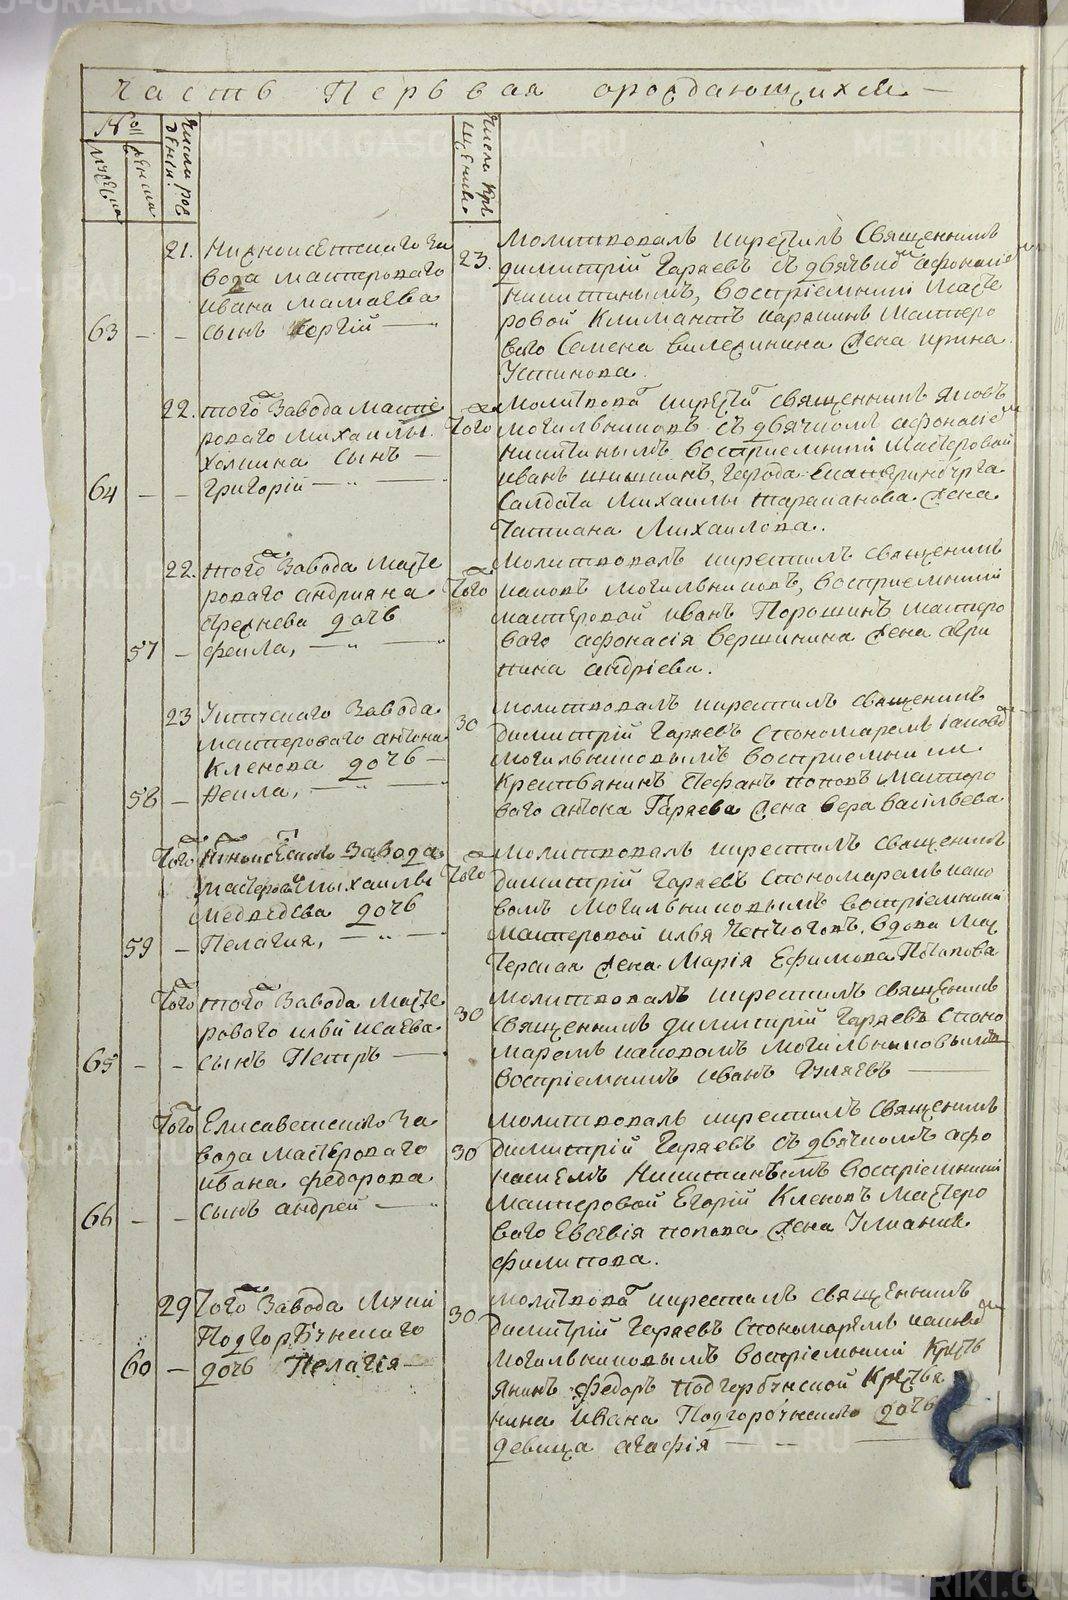 Часть Первая ораждающихся
№
мужеска
женска
Число рож
дения
Число кре
щения
21. Нижноисетскаго За
вода мастероваго
ивана мамаева
63 — — сынъ Георгій —
23. Молитвовалъ икрестилъ Священникъ
димитрій Гаряевъ съ дьячк. афонасіе
Никитинымъ, воспріемники Масте
ровой Климантъ карякинъ Мастеро
ваго Семена вилежинина жена ирина
Устинова
22. того Завода масте
роваго михаилы
холкина сынъ —
64 — — григорій —
того Молитвова икрести священникъ яковъ
могильниковъ съ дьячкомъ афонасіе
никитинымъ воспріемники Мастеровой
иванъ шишкинъ, Города Екатеринбурга
Салдата Михаилы тараканова жена
татиана Михаилова.
22. того Завода масте
роваго андрияна
57 — феила, —
того Молитвовалъ икрестилъ священникъ
иаковъ могильниковъ, воспріемники
мастеровой иванъ Порошинъ мастеро
ваго афонасія вершинина жена агри
пина андріева.
23 Уктускаго Завода
мастероваго антона
Кленова дочь —
58 — Неила, —
30 молитвовалъ икрестилъ священникъ
димитрій Гаряевъ спономаремъ іаково
могильниковымъ воспріемники
Крестьянинъ Стефанъ поповъ Мастеро
ваго антона Гаряева жена вера васильева
Того Нижноисетскаго Завода
мастероваго михаилы
медведева дочь
59 — Пелагия, —
того Молитвовалъ икрестилъ священникъ
димитрій Гаряевъ спономаремъ иако
вомъ Могильниковымъ воспріемники
мастеровой илья вдова мас
терская жена Марія Ефимова Потапова
Того того Завода масте
роваго ильи исаева
65 — — сынъ Петръ —
30 Молитвовалъ икрестилъ священникъ
священникъ димитрій Гаряевъ споно
маремъ иаковомъ могильниковымъ
воспріемникъ иванъ Гуляевъ —
Того Елисаветскаго За
вода мастероваго
ивана федорова
66 — — сынъ андрей —
30 молитвовалъ икрестилъ священникъ
димитрій Гаряевъ съ дьячкомъ афо
насиемъ Никитинымъ воспріемники
мастеровой Егорій Кленовъ Мастеро
ваго Евсевія попова жена Улиания
филипова.
29 Того Завода Луки
Подгорбунскаго
60 — дочь Пелагія —
30 молитвова икрестилъ священникъ
димитрій Гаряевъ спономаремъ иаково
могильниковымъ воспріемники Кресть
янинъ Федоръ подгорбунской Крестья
нина ивана Подгорбунскаго дочь
девица агафія —